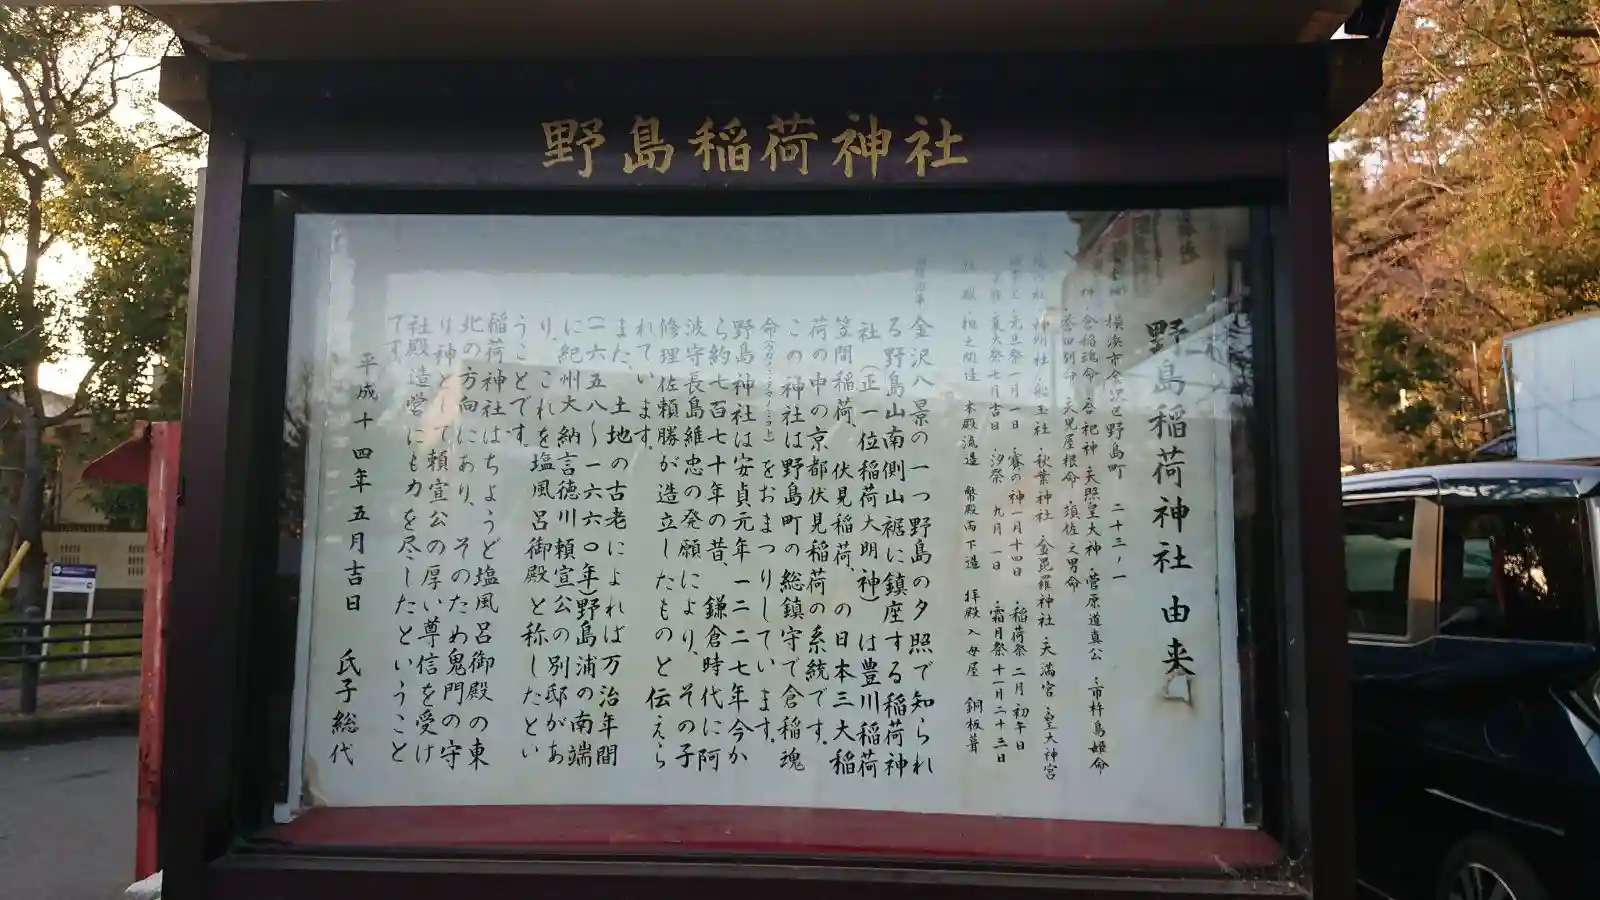 野島稲荷神社
野島稲荷神社由来
横浜市金沢区野島町 二十三ノ一
神 倉稲魂命 合祀神 天照皇大神 菅原道真公 市杵島姫命
誉田別命 天児屋根命 須佐之男命
神明社 船玉社 秋葉神社 金毘羅神社 天満宮 皇大神宮
元旦祭一月一日 賽の神一月十四日 稲荷祭二月初午日
夏大祭七月吉日 汐祭 九月一日 霜月祭十一月二十三日
相之間造 本殿流造 幣殿両下造 拝殿入母屋 銅板葺
金沢八景の一つ野島の夕照で知られ
る野島山南側山裾に鎮座する稲荷神
社(正一位稲荷大明神)は豊川稲荷
笠間稲荷、伏見稲荷、の日本三大稲
荷の中の京都伏見稲荷の系統です。
この神社は野島町の総鎮守で倉稲魂
命(ウガノミタマノミコト)をおまつりしています。
野島神社は安貞元年一二二七年今か
ら約七百七十年の昔、鎌倉時代に阿
波守長島維忠の発願により、その子
修理佐頼勝が造立したものと伝えら
れています。
また、土地の古老によれば万治年間
(一六五八〜一六六〇年)野島浦の南端
に紀州大納言徳川頼宣公の別邸があ
り、これを塩風呂御殿と称したとい
うことです。
稲荷神社はちょうど塩風呂御殿の東
北の方向にあり、そのため鬼門の守
り神として頼宣公の厚い尊信を受け
社殿造営にも力を尽したということ
です。
平成十四年五月吉日 氏子総代